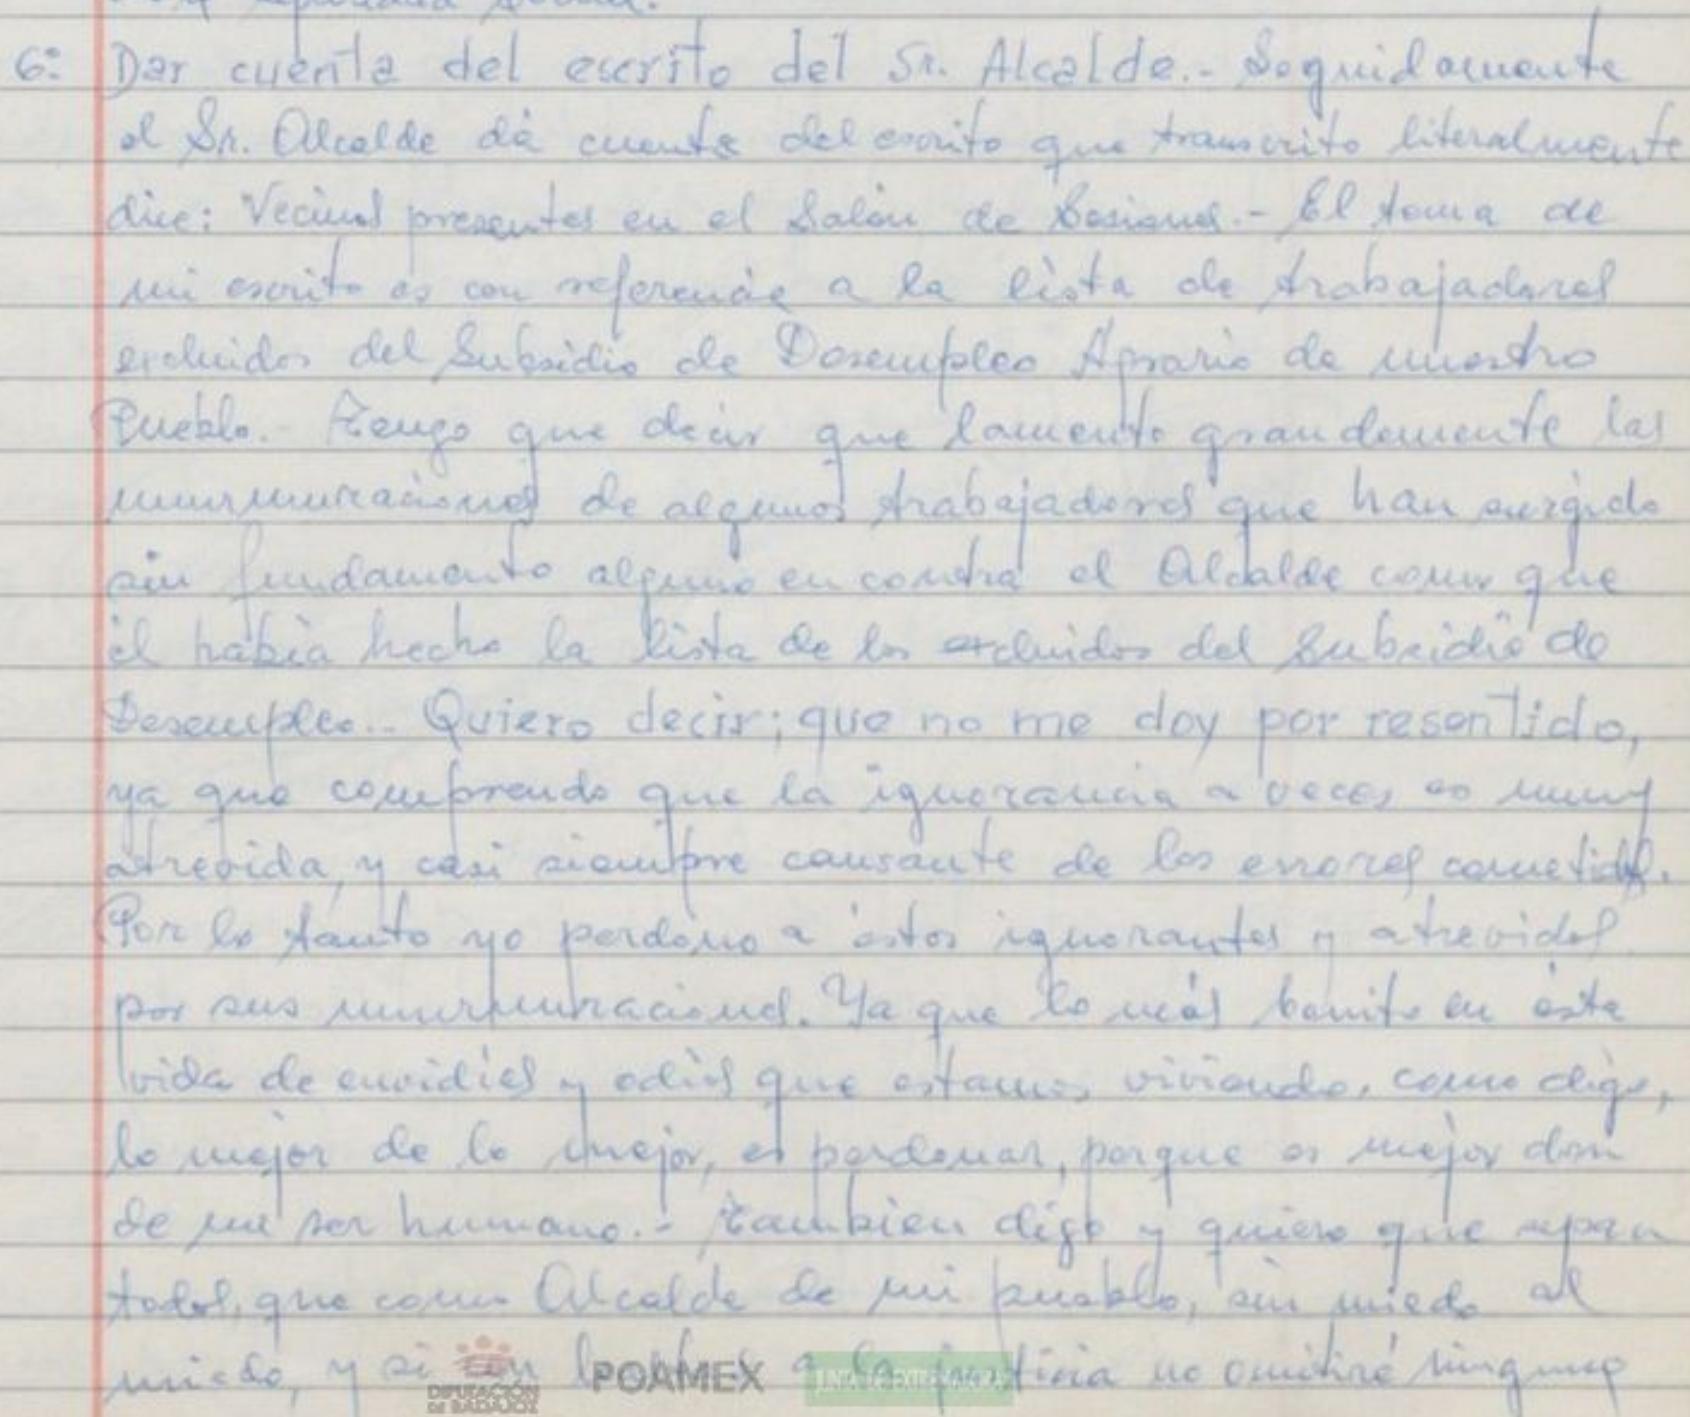 6º Dar cuenta del escrito del Sr. Alcalde.- Seguidamente
el Sr. Alcalde dá cuenta del escrito que transcrito literalmente
dice: Vecinos presentes en el Salón de Sesiones.- El tema de
mi escrito es con referencia a la lista de trabajadores
excluidos del Subsidio de Desempleo Agrario de nuestro
Pueblo.- Tengo que decir que lamento grandemente las
murmuraciones de algunos trabajadores que han surgido
sin fundamento alguno en contra el Alcalde como que
él había hecho la lista de los excluidos del Subsidio de
Desempleo.- Quiero decir; que no me doy por resentido,
ya que comprendo que la ignorancia a veces es muy
atrevida, y casi siempre causante de los errores cometidos.
Por lo tanto yo perdono a éstos ignorantes y atrevidos
por sus murmuraciones. Ya que lo más bonito en ésta
vida de envidias y odios que estamos viviendo, como digo,
lo mejor de lo mejor, es perdonar, porque es mejor don
de un ser humano.- También digo y quiero que sepan
todos, que como Alcalde de mi pueblo, sin miedo al
miedo, y si a la justicia no omitiré ninguno
DIPUTACIÓN
DE BADAJOZ
POAMEX
JUNTA DE EXTREMADURA